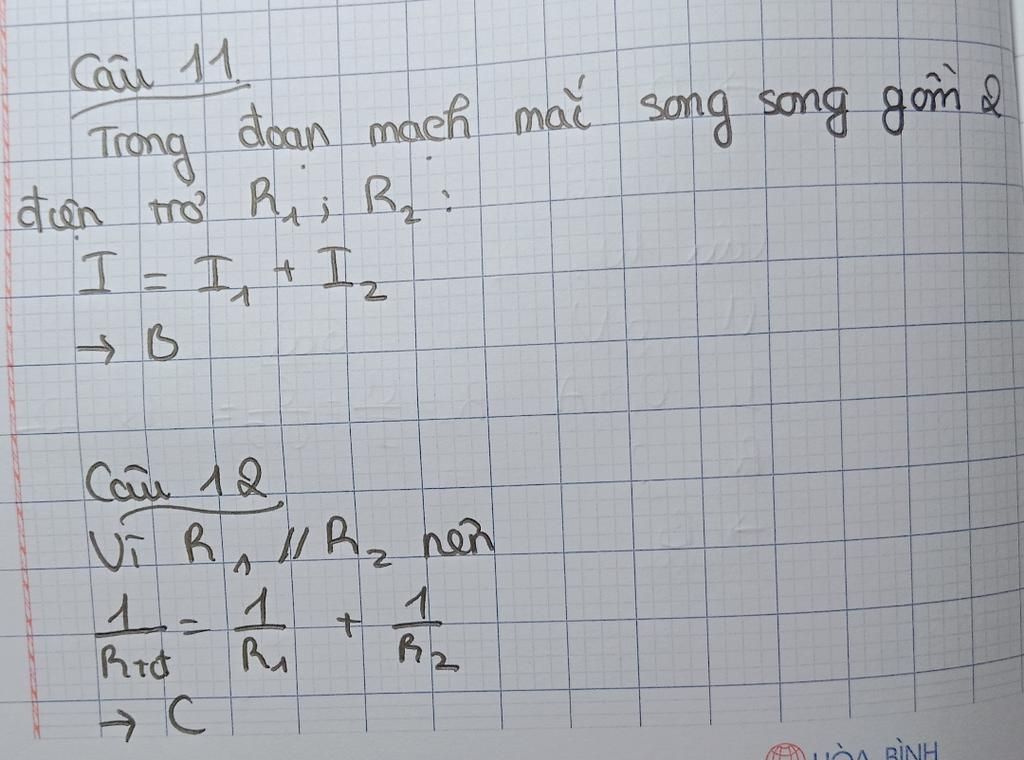 Câu 11.
Trong đoạn mạch mắc song song gồm 2
điện trở R₁; R₂:
I = I₁ + I₂
→ B
Câu 12
Vì R₁ // R₂ nên
1/Rtđ = 1/R₁ + 1/R₂
→ C
HÒA BÌNH